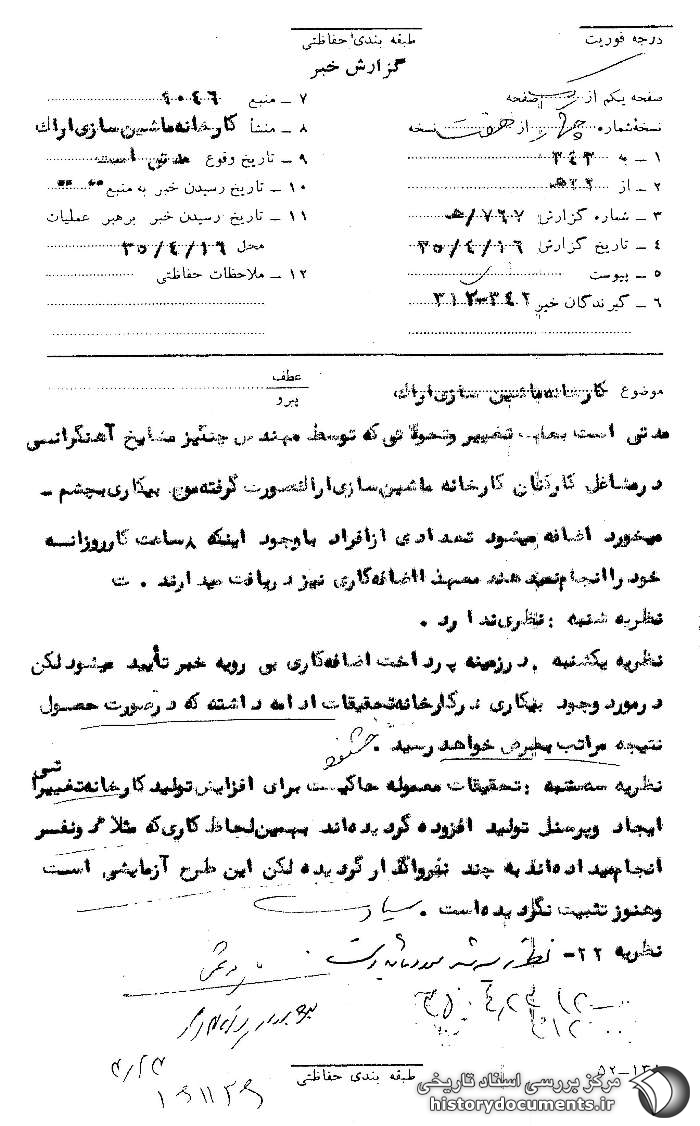 درجه فوریت
طبقه بندی حفاظتی
گزارش خبر
صفحه یکم از یک صفحه
نسخهٔ شماره چهار از هفت نسخه
۱ – به ۳۴۳
۲ – از
۳ – شماره گزارش ۷۶۷/ه
۴ – تاریخ گزارش ۳۵/۴/۱۶
۵ – پیوست
۶ – گیرندگان خبر ۳۴۲-۳۱۲
۷ – منبع ۹۰۴۶
۸ – منشأ کارخانه ماشین سازی اراک
۹ – تاریخ وقوع مدتی است
۱۰ – تاریخ رسیدن خبر به منبع
۱۱ – تاریخ رسیدن خبر برهبر عملیات
محل ۳۵/۴/۱۶
۱۲ – ملاحظات حفاظتی
موضوع کارخانه ماشین سازی اراک
عطف
پیرو
مدتی است بعلت تغییر وتحولاتی که توسط مهندس چنگیز مشایخ آهنگرانسی
درمشاغل کارکنان کارخانه ماشین سازی اراک صورت گرفته من بیکاری بچشم –
میخورد اضافه میشود تعدادی ازافراد باوجود اینکه ۸ ساعت کارروزانه
خود را انجام نمیدهند معهذا اضافه کاری نیز دریافت میدارند . ت
نظریه شنبه : نظری ندارد .
نظریه یکشنبه . درزمینه پرداخت اضافه کاری بی رویه خبر تأیید میشود لکن
درمورد وجود بیکاری درکارخانه تحقیقات ادامه داشته که درصورت حصول
نتیجه مراتب بعرض خواهد رسید . خشنود
نظریه سه شنبه : تحقیقات معموله حاکیست برای افزایش تولید کارخانه تغییراتی
ایجاد وپرسنل تولید افزوده گردیده اند بهمین لحاظ کاری که مثلا ونفر
انجام میداده اند به چند نفر واگذار گردیده لکن این طرح آزمایشی است
وهنوز تثبیت نگردیده است .
نظریه ۲۲- نظریه سه شنبه مورد تأیید است .
۴/۲۳
طبقه بندی حفاظتی
مرکز بررسی اسناد تاریخی
historydocuments.ir